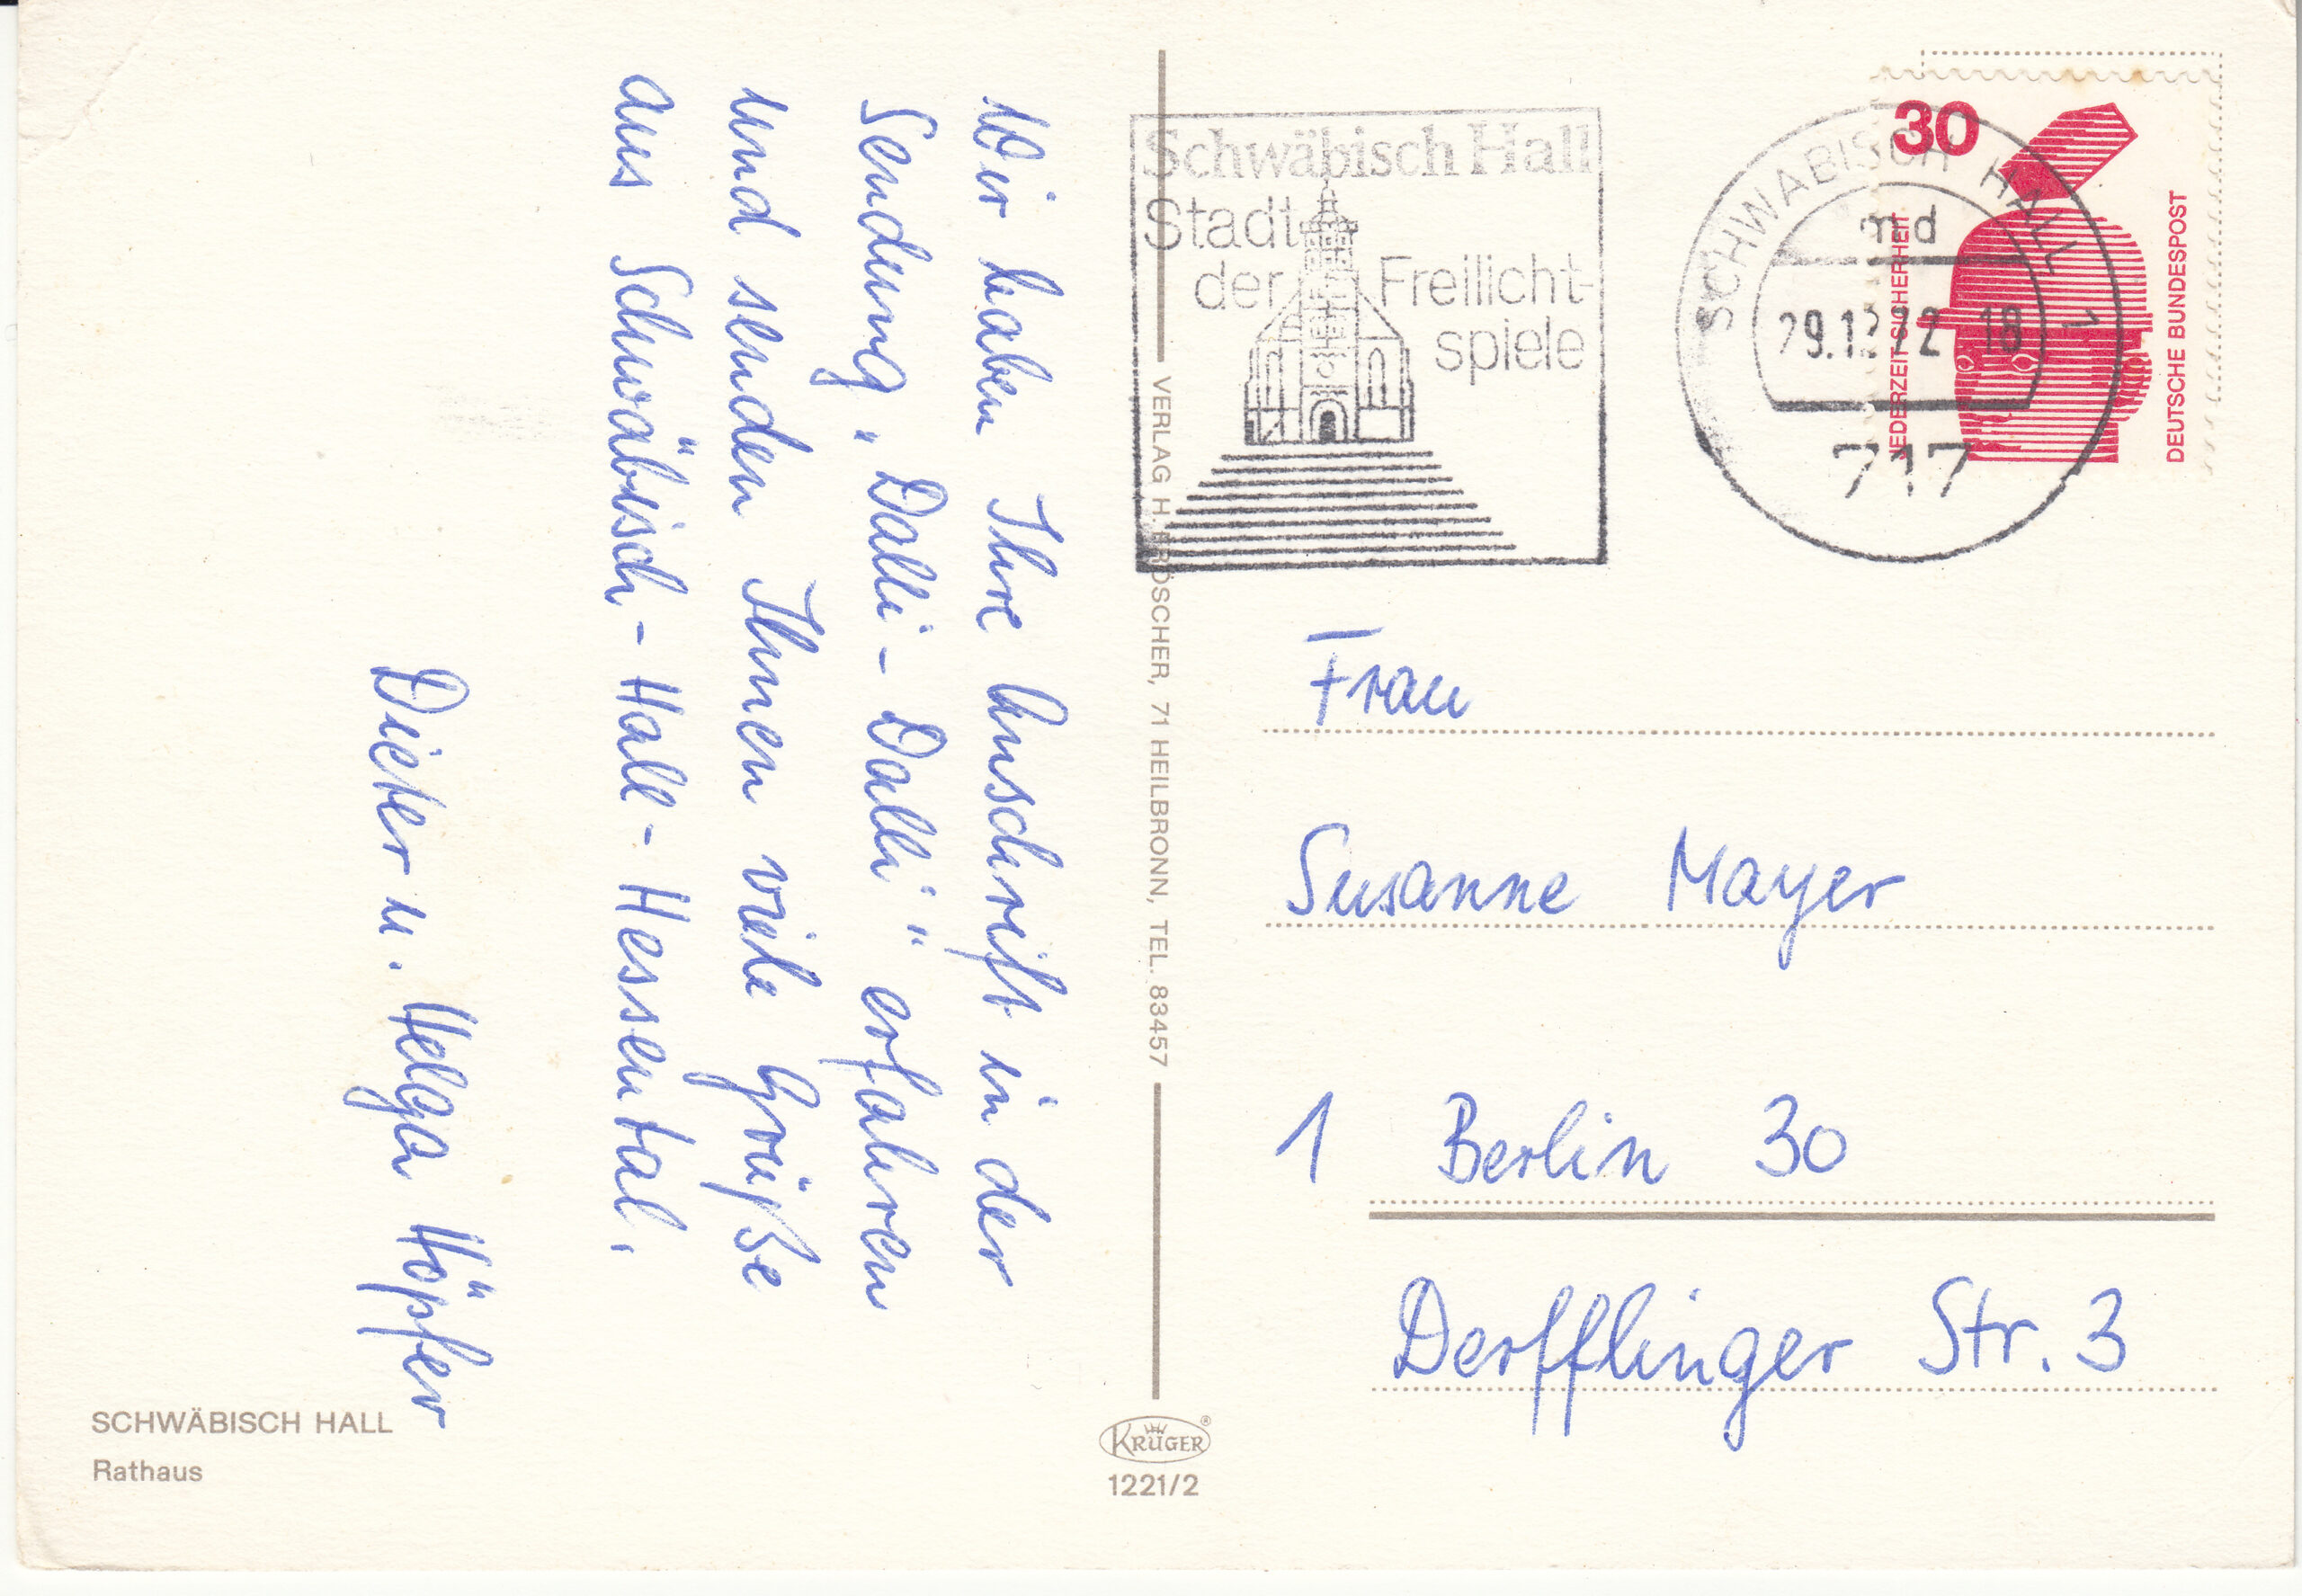 Wir haben Ihre Anschrift in der
Sendung „Dalli-Dalli" erfahren
und senden Ihnen viele Grüße
aus Schwäbisch-Hall-Hessental.
Dieter u. Helga Höpfer
SCHWÄBISCH HALL
Rathaus
VERLAG H. FRÖSCHER, 71 HEILBRONN, TEL. 83457
KRÜGER®
1221/2
Schwäbisch Hall
Stadt
der Freilicht-
spiele
SCHWÄBISCH HALL 1
md
29.12.72-18
717
30
JEDERZEIT SICHERHEIT
DEUTSCHE BUNDESPOST
Frau
Susanne Mayer
1 Berlin 30
Derfflinger Str. 3